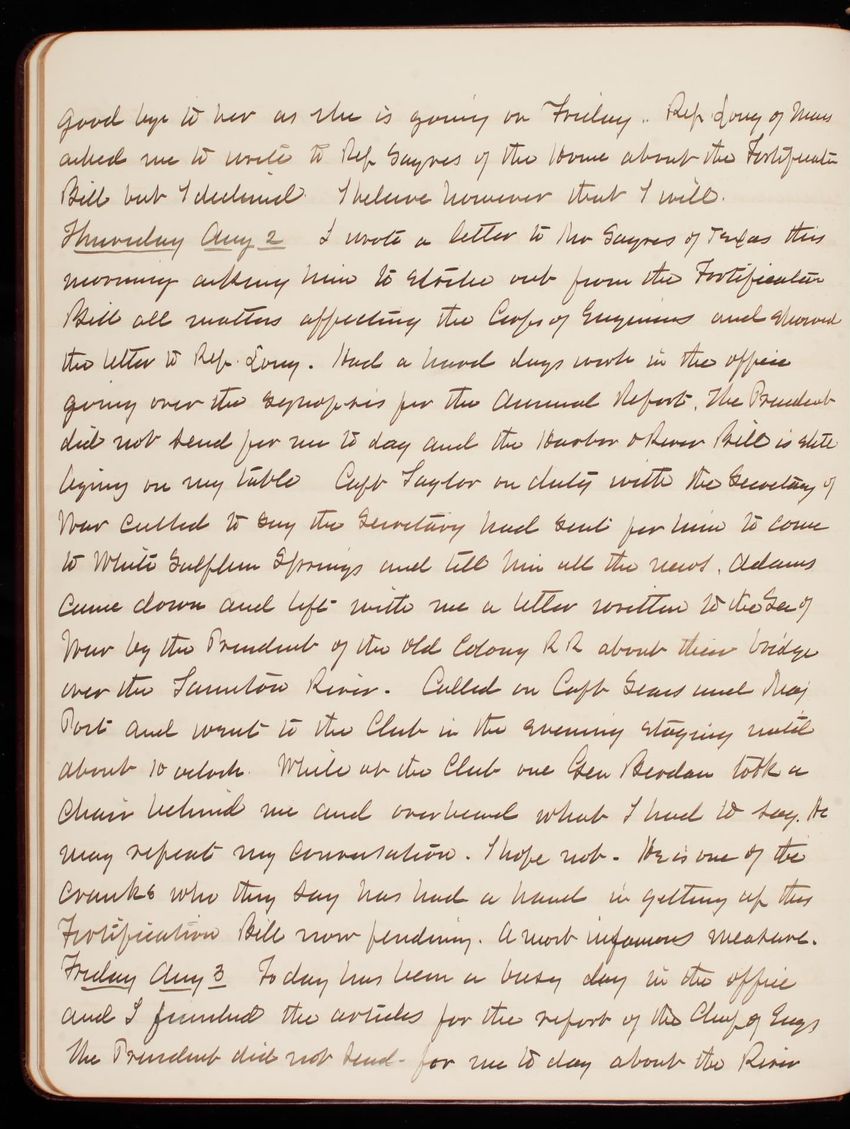 good bye to her as she is going on Friday.. Rep. Long of Mass
asked me to write to Rep Sayres of the House about the Fortification
Bill but I declined. I believe however that I will.
Thursday Aug 2 I wrote a letter to Mr Sayres of Texas this
morning asking him to strike out from the Fortification
Bill all matters affecting the Corps of Engineers and showed
the letter to Rep. Long. Had a hard days work in the office
going over the synopsis for the Annual Report. The President
did not send for me to day and the Harbor & River Bill is still
lying on my table Capt Taylor on duty with the Secretary of
War called to say the Secretary had sent for him to come
to White Sulphur Springs and tell him all the news. Adams
came down and left with me a letter written to the Sec of
War by the President of the Old Colony R R about their bridge
over the Taunton River. Called on Capt Sears and Maj
Post and went to the Club in the evening staying until
about 10 oclock. While at the Club one Gen Berdan took a
chair behind me and overheard what I had to say. He
may repeat my conversation. I hope not. He is one of the
cranks who they say has had a hand in getting up this
Fortification Bill now pending. A most infamous measure.
Friday Aug 3 To day has been a busy day in the office
and I finished the articles for the report of the Chief of Engs
The President did not send for me to day about the River